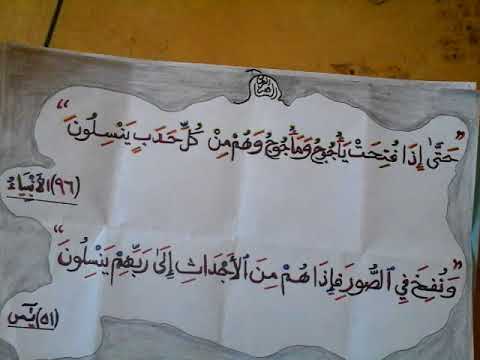 "حَتَّىٰ إِذَا فُتِحَتْ يَأْجُوجُ وَمَأْجُوجُ وَهُمْ مِنْ كُلِّ حَدَبٍ يَنْسِلُونَ"
(٩٦) الأَنْبِيَاءُ
"وَنُفِخَ فِي ٱلصُّورِ فَإِذَا هُمْ مِنَ ٱلأَجْدَاثِ إِلَىٰ رَبِّهِمْ يَنْسِلُونَ"
(٥١) يٓسٓ